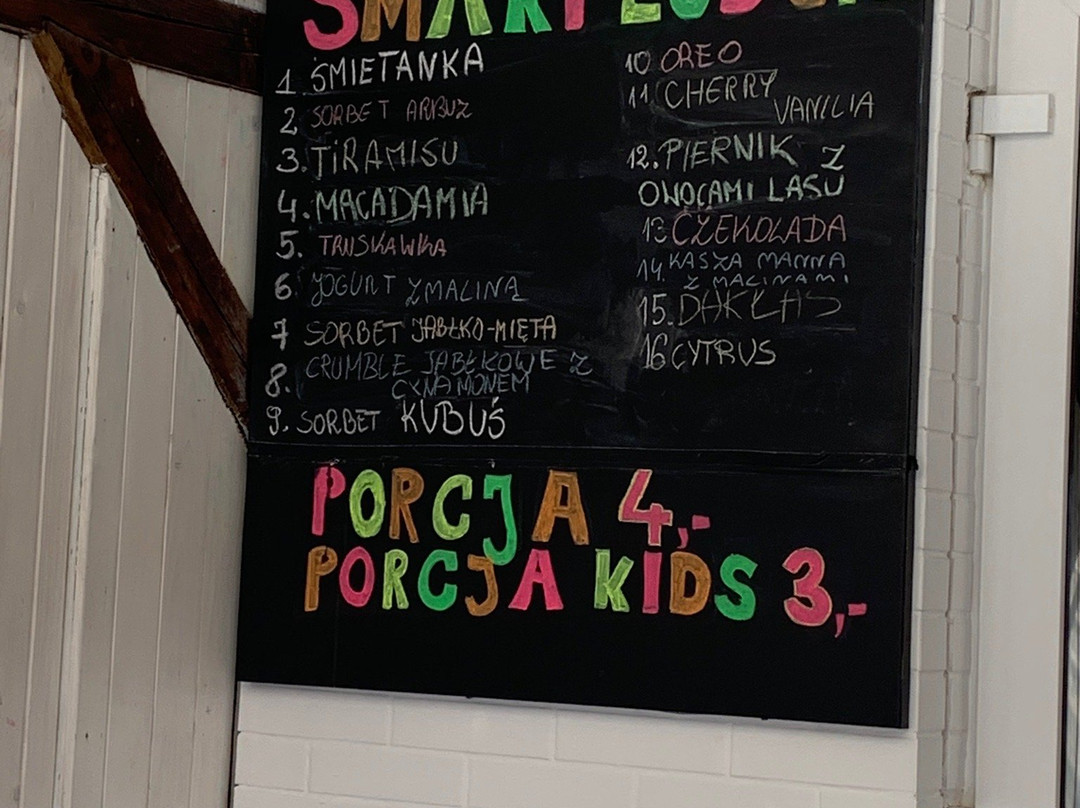 SMAKI LODÓW
1. ŚMIETANKA
2 SORBET ARBUZ
3. TiRAMISU
4. MACADAMIA
5. TRUSKAWKA
6. JOGURT Z MALINĄ
7 SORBET JABŁKO-MIĘTA
8. CRUMBLE JABŁKOWE Z
CYNAMONEM
9. SORBET KUBUŚ
10 OREO
11 CHERRY
VANILIA
12. PIERNIK Z
OWOCAMI LASU
13 CZEKOLADA
14. KASZA MANNA
Z MALINAMI
15. DAKLAS
16 CYTRUS
PORCJA 4,-
PORCJA KIDS 3,-